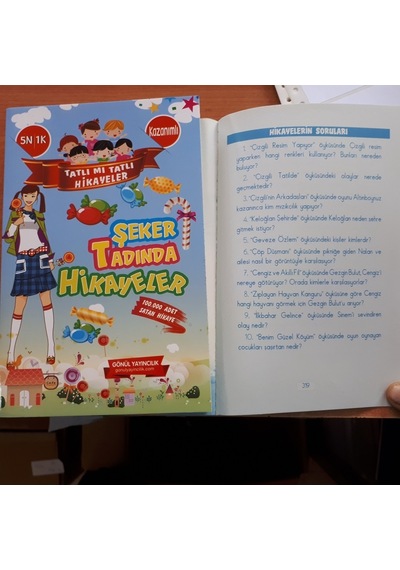 5N 1K
Kazanımlı
TATLI MI TATLI
HİKAYELER
ŞEKER
TADINDA
HİKAYELER
100.000 ADET
SATAN HİKAYE
GÖNÜL YAYINCILIK
gonulyayincilik.com
HİKAYELERİN SORULARI
1. "Çizgili Resim Yapıyor" öyküsünde Çizgili resim
yaparken hangi renkleri kullanıyor? Bunları nereden
buluyor?
2. "Çizgili Tatilde" öyküsündeki olaylar nerede
geçmektedir?
3. "Çizgili'nin Arkadaşları" öyküsünde oyunu Altınboynuz
kazanınca kim mızıkçılık yapıyor?
4. "Keloğlan Şehirde" öyküsünde Keloğlan neden şehre
gitmek istiyor?
5. "Geveze Özlem" öyküsündeki kişiler kimlerdir?
6. "Çöp Düşmanı" öyküsünde pikniğe giden Nalan ve
ailesi nasıl bir görüntüyle karşılaşıyor?
7. "Cengiz ve Akıllı Fil" öyküsünde Gezgin Bulut, Cengiz'i
nereye götürüyor? Orada kimlerle karşılaşıyorlar?
8. "Zıplayan Hayvan Kanguru" öyküsüne göre Cengiz
hangi hayvanı görmek için Gezgin Bulut'u arıyor?
9. "İlkbahar Gelince" öyküsünde Sinem'i sevindiren
olay nedir?
10. "Benim Güzel Köyüm" öyküsünde oyun oynayan
çocukları şaşırtan nedir?